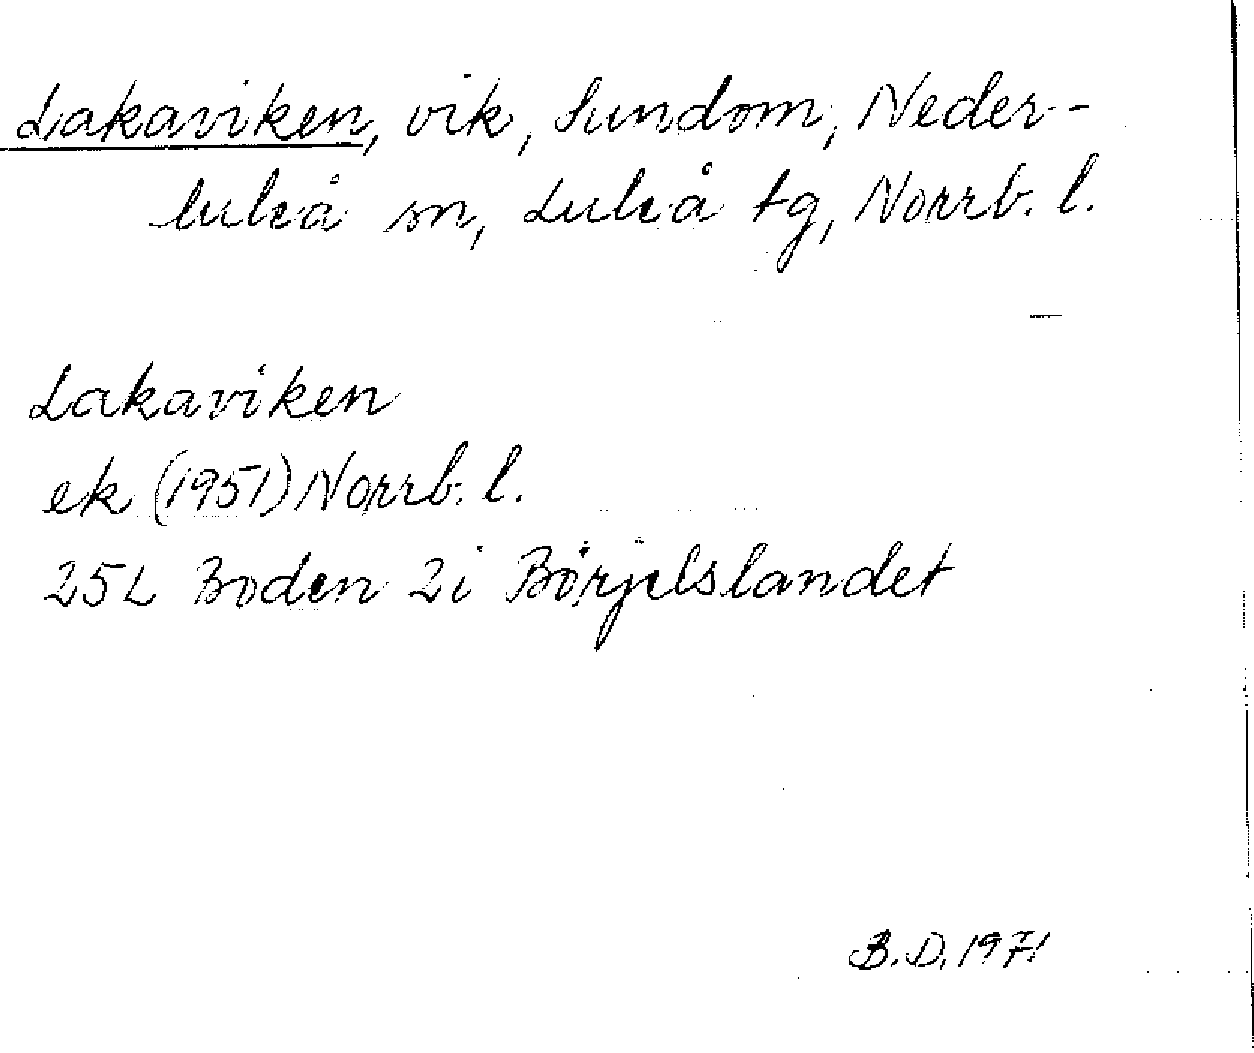 Lakaviken, vik, Sundom, Neder-
luleå sn, Luleå tg, Norrb. l.
Lakaviken
ek (1951) Norrb. l.
25L Boden 2i Börjelslandet
B.D. 1971